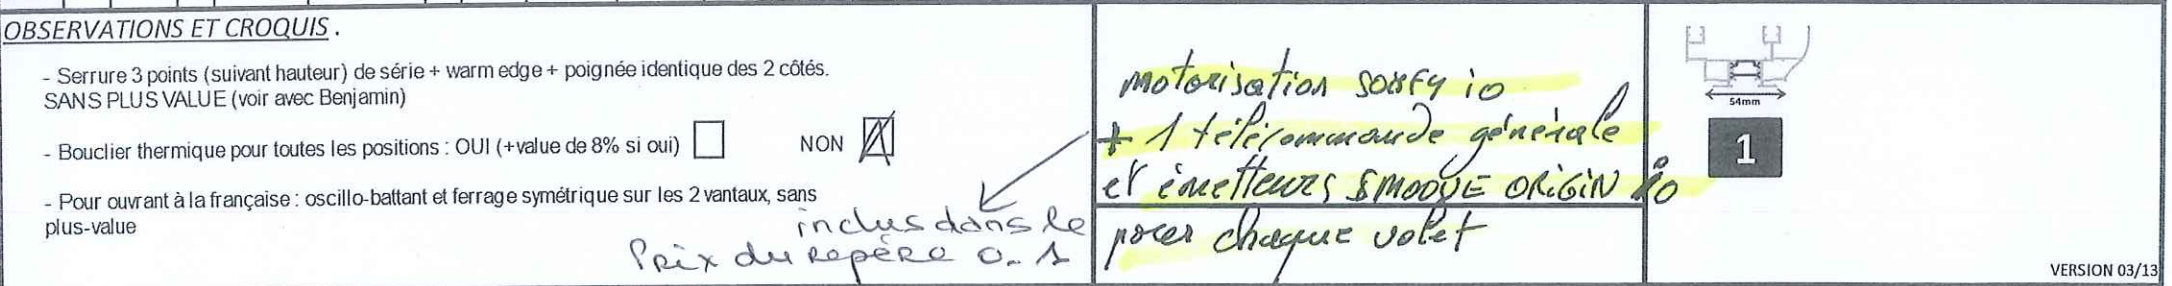 OBSERVATIONS ET CROQUIS .
- Serrure 3 points (suivant hauteur) de série + warm edge + poignée identique des 2 côtés.
SANS PLUS VALUE (voir avec Benjamin)
- Bouclier thermique pour toutes les positions : OUI (+value de 8% si oui) NON
- Pour ouvrant à la française : oscillo-battant et ferrage symétrique sur les 2 vantaux, sans
plus-value
inclus dans le
Prix du repère 0.1
motorisation somfy io
+ 1 télécommande générale
et émetteurs SMOOVE ORIGIN io
pour chaque volet
54mm
1
VERSION 03/13